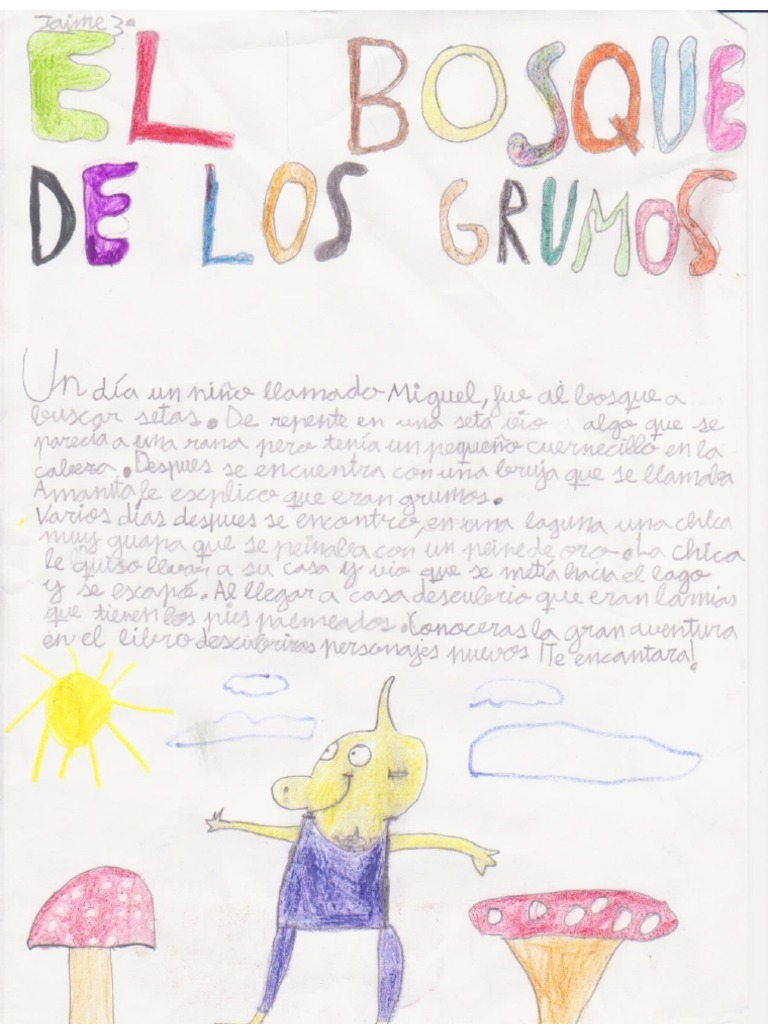 Jaime 3ª
EL BOSQUE
DE LOS GRUMOS
Un día un niño llamado Miguel, fue al bosque a
buscar setas. De repente en una seta vio algo que se
parecia a una rana pero tenía un pequeño cuernecillo en la
cabeza. Despues se encuentra con una bruja que se llamaba
Amanita, le explico que eran grumos.
Varios días despues se encontro, en una laguna una chica
muy guapa que se peinaba con un peine de oro. La chica
le quiso llevar a su casa y vio que se metía hacia el lago
y se escapó. Al llegar a casa descubrio que eran lamias
que tienen los pies palmeados. Conoceras la gran aventura
en el libro descubriras personajes nuevos ¡Te encantara!